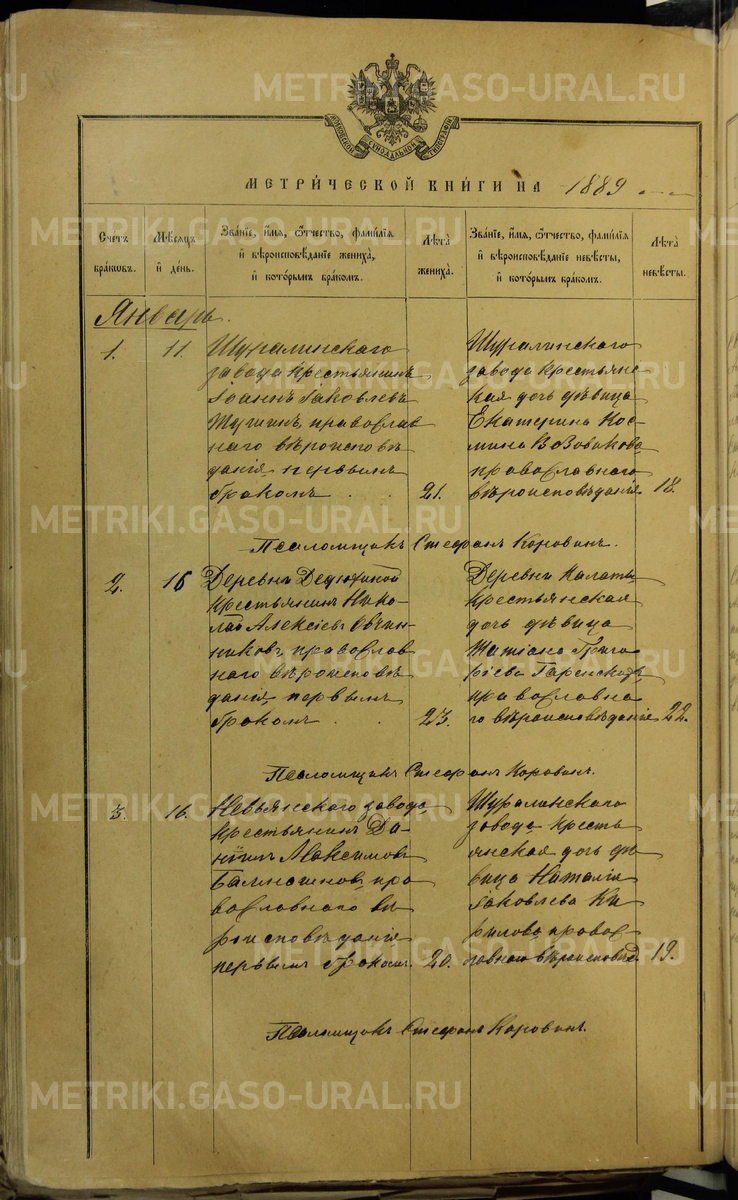 МОСКОВСКОЙ СѴНОДАЛЬНОЙ ТИПОГРАФІИ
МЕТРИ́ЧЕСКОЙ КНИ́ГИ НА 1889
Счетъ браковъ.
Мѣсяцъ и день.
Званіе, имя, ѻтчество, фамилія
и вѣроисповѣданіе жениха,
и которымъ бракомъ.
Лѣта жениха.
Званіе, имя, ѻтчество, фамилія
и вѣроисповѣданіе невѣсты,
и которымъ бракомъ.
Лѣта невѣсты.
Январь.
1.
11.
Шуралинскаго
завода крестьянинъ
Іоаннъ Іаковлевъ
православ
наго вѣроисповѣ
данія, первымъ
бракомъ
21.
Шуралинскаго
завода крестьянс
кая дочь дѣвица
Екатерина Кос-
мина
православнаго
вѣроисповѣданія
18.
Псаломщикъ Стефанъ Коровинъ.
2.
16
Деревни
крестьянинъ Нико-
лай Алексіевъ Овчин
никовъ, православ
наго вѣроисповѣ
данія, первымъ
бракомъ
23.
Деревни
крестьянская
дочь дѣвица
Татіана Григо
ріева
православна
го вѣроисповѣданія
22.
Псаломщикъ Стефанъ Коровинъ.
3.
16.
Невьянскаго завода
крестьянинъ Да-
ніилъ Максимовъ
пра
вославнаго вѣ
роисповѣданія
первымъ бракомъ.
20.
Шуралинскаго
завода кресть
янская дочь дѣ
вица Наталія
Іаковлева Ки
рилова правос
лавнаго вѣроисповѣд.
19.
Псаломщикъ Стефанъ Коровинъ.
METRIKI.GASO-URAL.RU